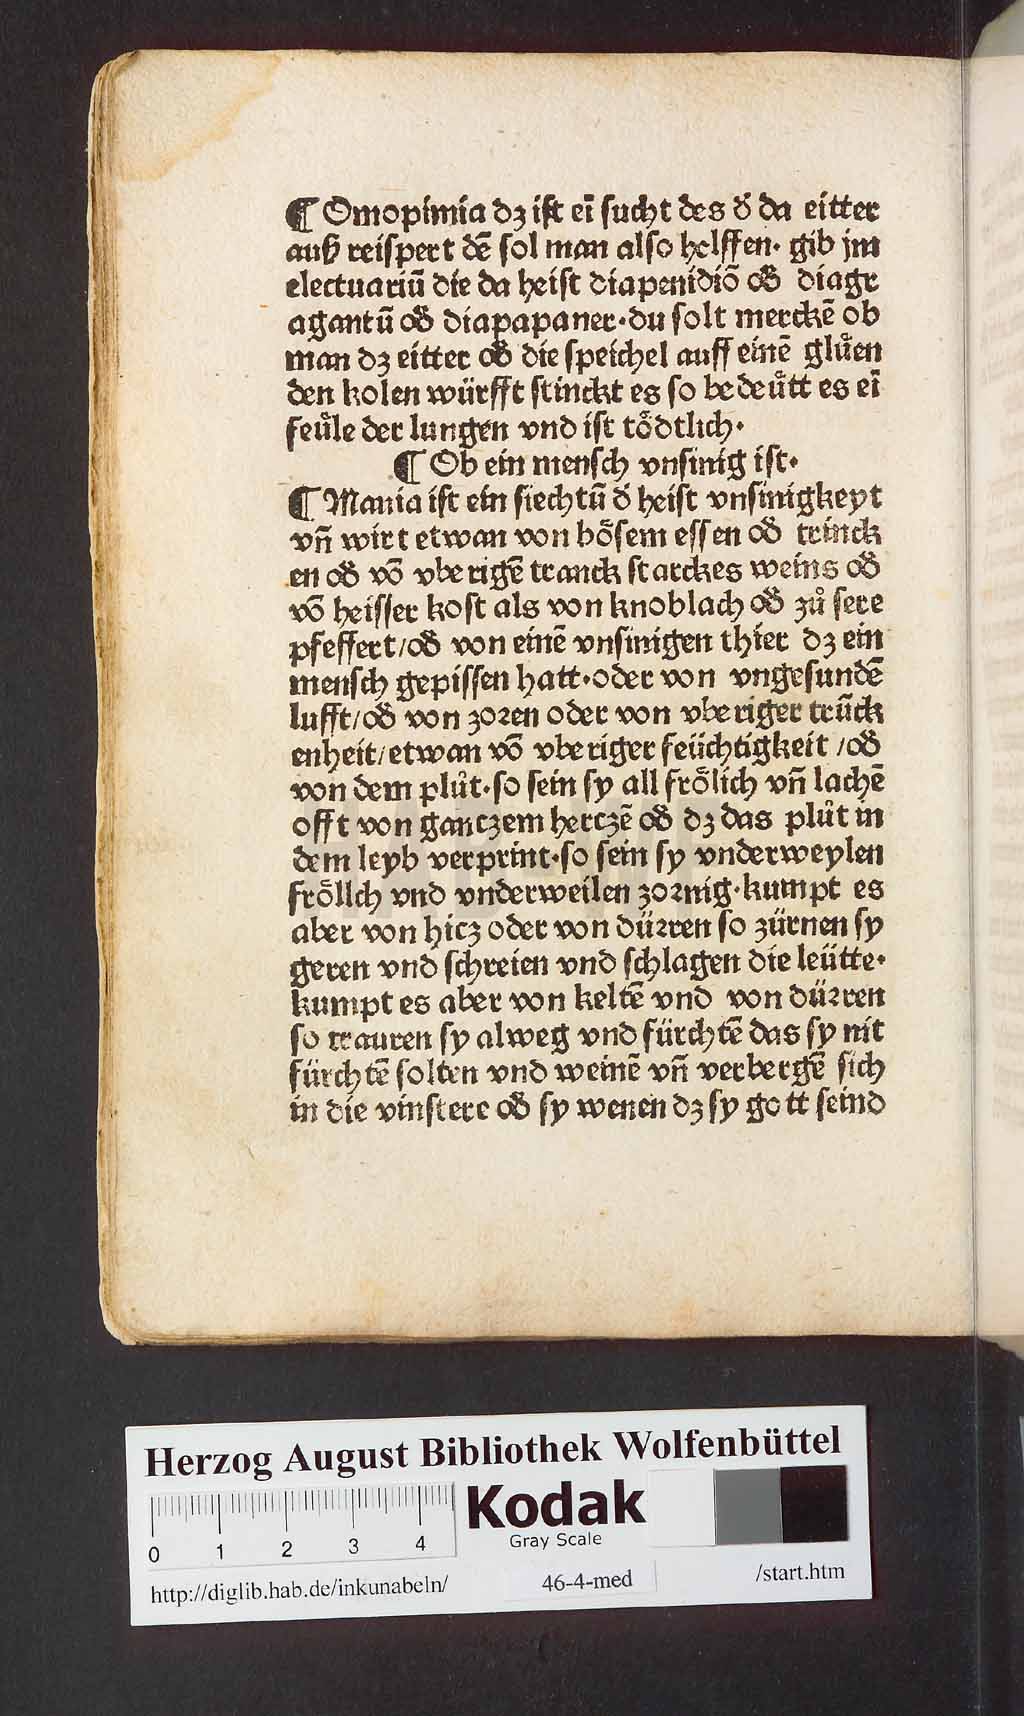 ¶ Omopimia dz ist eī sucht des d̄ da eitter
auß reispert dē sol man also helffen· gib jm
electuariū die da heist diapenidiō od̄ diagr
agantū od̄ diapapaner·du solt merckē ob
man dz eitter od̄ die speichel auff einē glůen
den kolen würfft stinckt es so bedeůtt es eī
feůle der lungen vnd ist tödtlich·
¶ Ob ein mensch vnsinig ist·
¶ Mania ist ein siechtū d̄ heist vnsinigkeyt
vn̄ wirt etwan von bösem essen od̄ trinck
en od̄ vō vberigē tranck starckes weins od̄
vō heisser kost als von knoblach od̄ zů sere
pfeffert/od̄ von einē vnsinigen thier dz ein
mensch gepissen hatt·oder von vngesundē
lufft/od̄ von zoꝛen oder von vberiger trück
enheit/etwan vō vberiger feüchtigkeit /od̄
von dem plůt·so sein sy all frölich vn̄ lachē
offt von ganczem herczē od̄ dz das plůt in
dem leyb verprint·so sein sy vnderweylen
fröllch vnd vnderweilen zoꝛnig·kumpt es
aber von hicz oder von düꝛren so zürnen sy
geren vnd schreien vnd schlagen die leütte·
kumpt es aber von keltē vnd von düꝛren
so trauren sy alweg vnd fürchtē das sy nit
fürchtē solten vnd weinē vn̄ verbergē sich
in die vinstere od̄ sy wenen dz sy gott seind
HAB WF
Herzog August Bibliothek Wolfenbüttel
0 1 2 3 4
Kodak
Gray Scale
http://diglib.hab.de/inkunabeln/ 46-4-med /start.htm